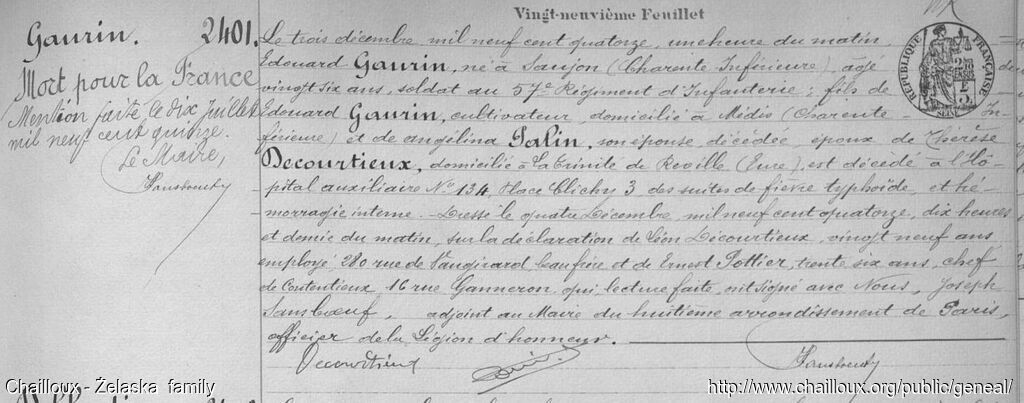 Vingt-neuvième Feuillet
Gaurin. 2401.
Mort pour la France
Mention faite le dix juillet
mil neuf cent quinze.
Le Maire,
Le trois décembre mil neuf cent quatorze, une heure du matin,
Edouard Gaurin, né à Saujon (Charente Inférieure), âgé
vingt six ans, soldat au 57e Régiment d'Infanterie; fils de
Edouard Gaurin, cultivateur, domicilié à Médis (Charente-In-
férieure) et de Angélina Salin, son épouse décédée, époux de Thérèse
Decourtieux, domicilié à La Trinité de Reville (Eure), est décédé à l'Hô-
pital auxiliaire No 134, Place Clichy 3 des suites de fièvre typhoïde, et hé-
morragie interne. - Dressé le quatre Décembre, mil neuf cent quatorze, dix heures
et demie du matin, sur la déclaration de Léon Décourtieux, vingt neuf ans
employé, 280 rue de Vaugirard beaufrère et de Ernest Pottier, trente six ans, chef
de Contentieux, 16 rue Ganneron qui, lecture faite, ont signé avec Nous, Joseph
Sambœuf, adjoint au Maire du huitième arrondissement de Paris,
officier de la Légion d'honneur.
Decourtieux
RÉPUBLIQUE FRANÇAISE
SEINE
Chailloux - Želaska family
http://www.chailloux.org/public/geneal/